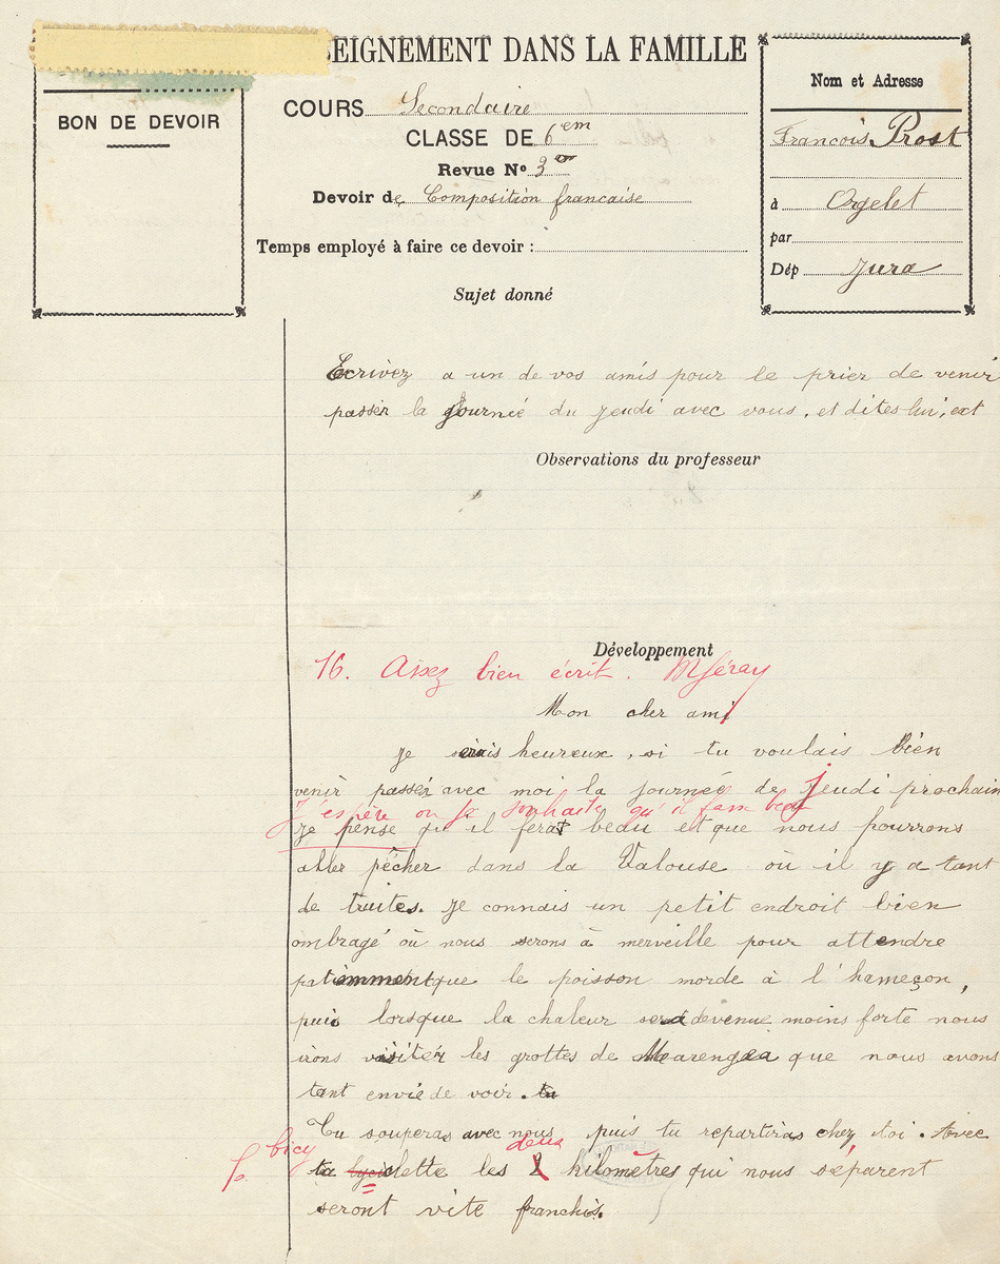 SEIGNEMENT DANS LA FAMILLE
BON DE DEVOIR
COURS Secondaire
CLASSE DE 6em
Revue No 3er
Devoir de Composition francaise
Temps employé à faire ce devoir :
Nom et Adresse
Francois Prost
à Orgelet
par
Dép Jura
Sujet donné
Ecrivez a un de vos amis pour le prier de venir
passer la journeé du jeudi avec vous, et dites lui, ect
Observations du professeur
Développement
16. Assez bien écrit. MGéray
Mon cher ami
Je serais heureux, si tu voulais bien
venir passer avec moi la journeé de jeudi prochain
J'espère ou je souhaite qu'il fasse beau
Je pense qu'il ferat beau et que nous pourrons
aller pêcher dans la Valouse où il y a tant
de truites. Je connais un petit endroit bien
ombragé où nous serons à merveille pour attendre
patiemment que le poisson morde à l'hameçon,
puis lorsque la chaleur sera devenue moins forte nous
irons visiter les grottes de Marengea que nous avons
tant envie de voir. tu
Tu souperas avec nous puis tu repartiras chez toi. Avec
bicy deux
ta lyciclette les 2 kilomètres qui nous séparent
seront vite franchis.